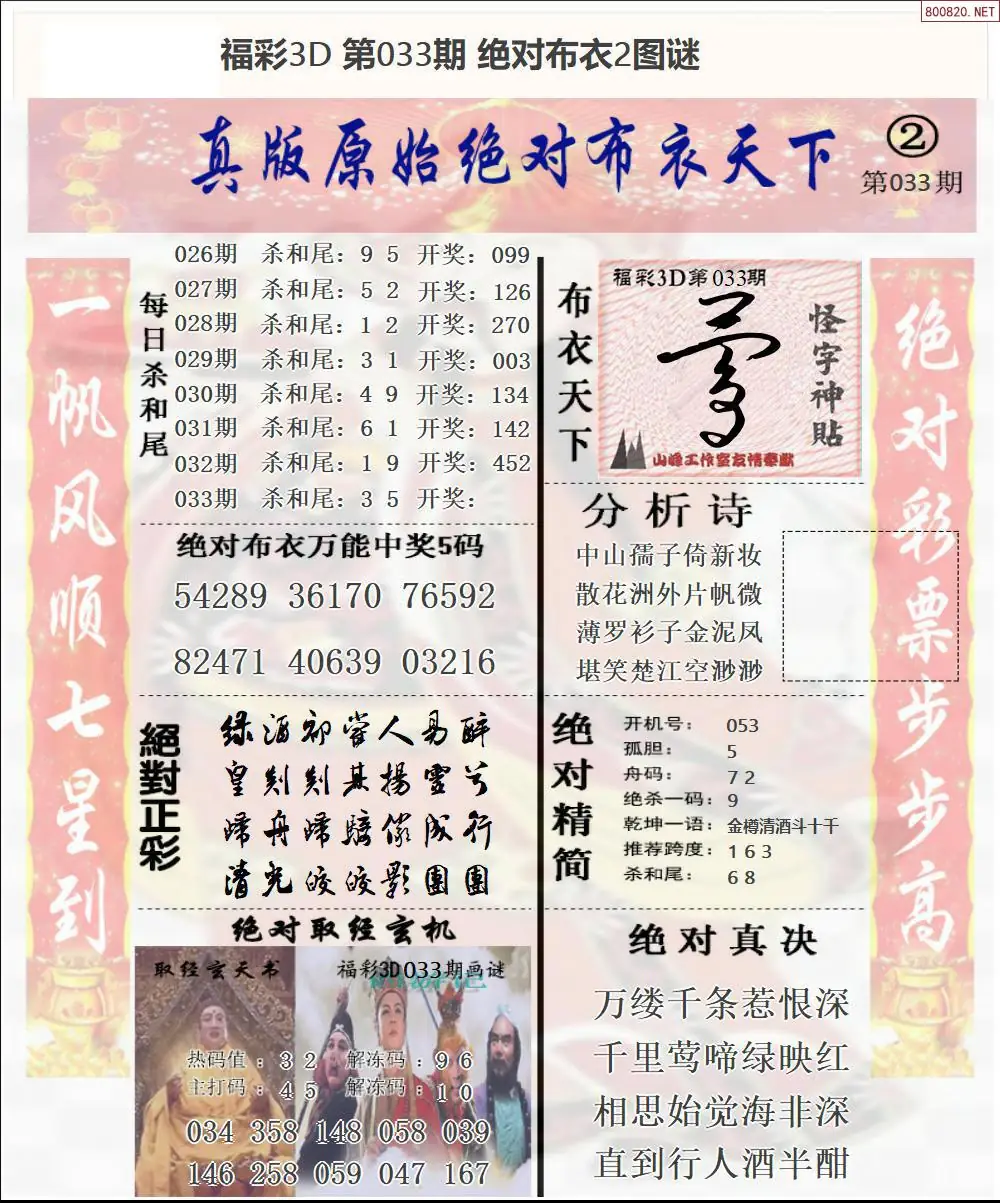 800820.NET
福彩3D 第033期 绝对布衣2图谜
真版原始绝对布衣天下
②
第033期
一帆风顺七星到
每日杀和尾
026期 杀和尾：9 5 开奖：099
027期 杀和尾：5 2 开奖：126
028期 杀和尾：1 2 开奖：270
029期 杀和尾：3 1 开奖：003
030期 杀和尾：4 9 开奖：134
031期 杀和尾：6 1 开奖：142
032期 杀和尾：1 9 开奖：452
033期 杀和尾：3 5 开奖：
绝对布衣万能中奖5码
54289 36170 76592
82471 40639 03216
絕對正彩
清光皎皎影團團
绝对取经玄机
取经玄天书
福彩3D033期画谜
热码值：3 2 解冻码：9 6
主打码：4 5 解冻码：1 0
034 358 148 058 039
146 258 059 047 167
布衣天下
福彩3D第033期
怪字神贴
山峰工作室友情奉献
分析诗
中山孺子倚新妆
散花洲外片帆微
薄罗衫子金泥凤
堪笑楚江空渺渺
绝对精简
开机号： 053
孤胆： 5
舟码： 7 2
绝杀一码：9
乾坤一语：金樽清酒斗十千
推荐跨度：1 6 3
杀和尾： 6 8
绝对真决
万缕千条惹恨深
千里莺啼绿映红
相思始觉海非深
直到行人酒半酣
绝对彩票步步高